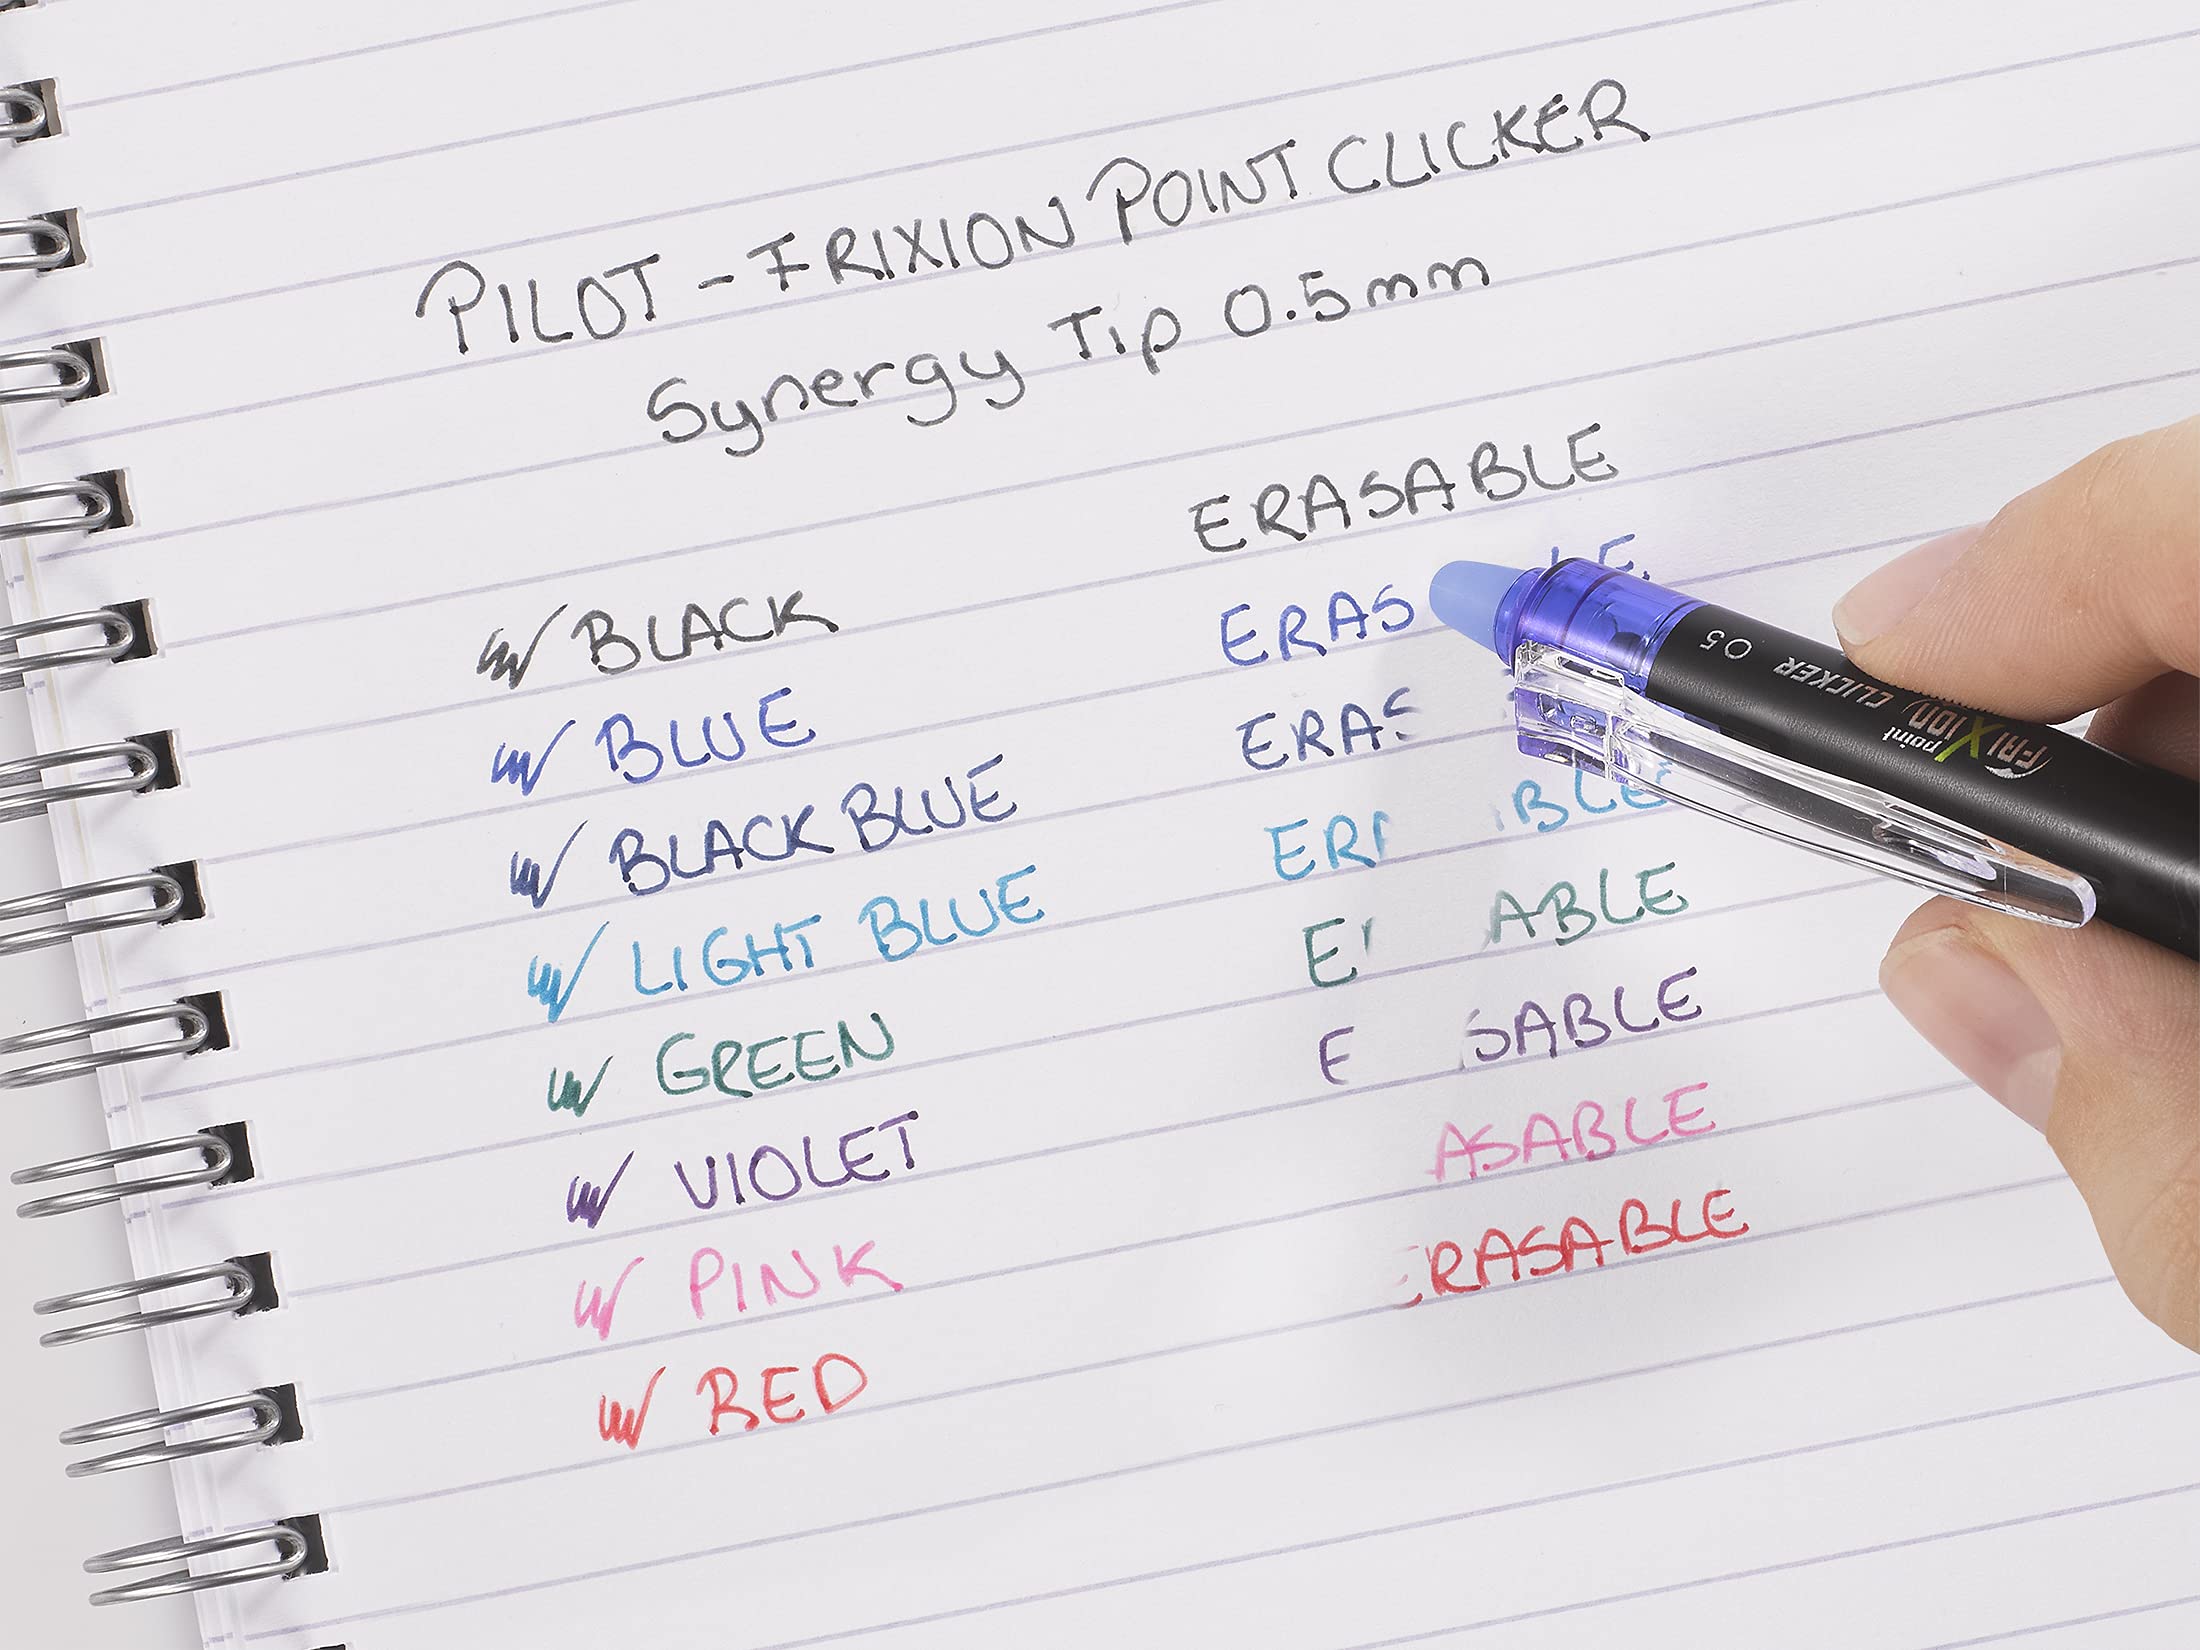 PILOT - FRIXION POINT CLICKER
Synergy Tip 0.5mm
ERASABLE
BLACK
ERAS LE
BLUE
ERAS
BLACK BLUE
ER BLE
LIGHT BLUE
E ABLE
GREEN
E SABLE
VIOLET
ASABLE
PINK
ERASABLE
RED
FRIXION point CLICKER 05